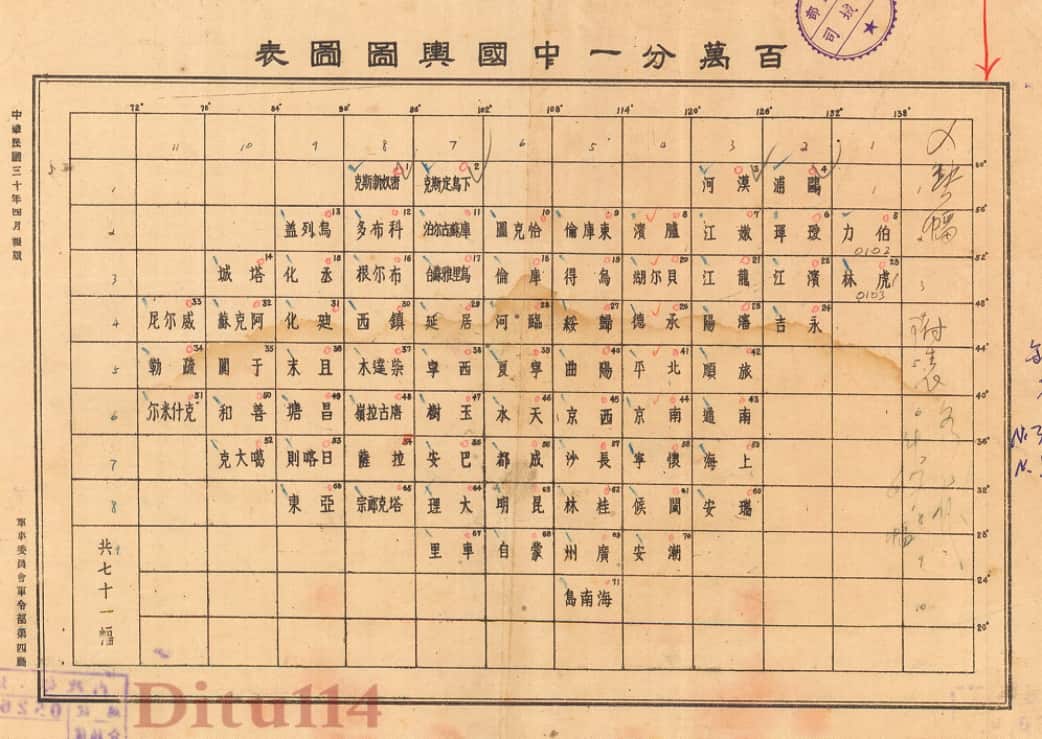 百萬分一中國輿圖圖表
72° 78° 84° 90° 96° 102° 108° 114° 120° 126° 132° 138°
11 10 9 8 7 6 5 4 3 2 1
1 鷗浦 4 漠河 3 下烏定斯克 2 密奴新斯克 1
2 伯力 5 璦琿 6 嫩江 7 臚濱 8 東庫倫 9 恰克圖 10 庫蘇古尔泊 11 科布多 12 烏列蓋 13
0103
3 虎林 23 濱江 22 龍江 21 貝尔湖 20 烏得 19 庫倫 18 烏里雅蘇台 17 布尔根 16 丞化 15 塔城 14
0103
4 永吉 24 瀋陽 25 承德 26 歸綏 27 臨河 28 居延 29 鎮西 30 廸化 31 阿克蘇 32 威尔尼 33
5 旅順 42 北平 41 陽曲 40 寧夏 39 西寧 38 柴達木 37 且末 36 于闐 35 疏勒 34
6 南通 43 南京 44 西京 45 天水 46 玉樹 47 唐古拉嶺 48 昌塘 49 善和 50 克什米尔 51
7 上海 59 懷寧 58 長沙 57 成都 56 巴安 55 拉薩 54 日喀則 53 噶大克 52
8 瑞安 60 閩侯 61 桂林 62 昆明 63 大理 64 亞東 66
潮安 70 廣州 69 蒙自 68 車里 67
海南島 71
52° 48° 44° 40° 36° 32° 28° 24° 20°
共七十一幅
中華民國三十年四月製版
軍事委員會軍令部第四廳
Ditu114